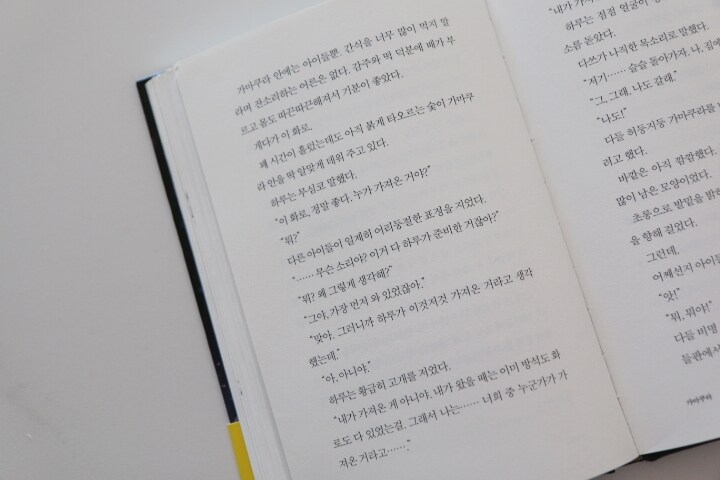 가마쿠라 안에는 아이들뿐. 간식을 너무 많이 먹지 말
라며 잔소리하는 어른은 없다. 감주와 떡 덕분에 배가 부
르고 몸도 따끈따끈해져서 기분이 좋았다.
게다가 이 화로.
꽤 시간이 흘렀는데도 아직 붉게 타오르는 숯이 가마쿠
라 안을 딱 알맞게 데워 주고 있다.
하루는 무심코 말했다.
“이 화로, 정말 좋다. 누가 가져온 거야?”
“뭐?”
다른 아이들이 일제히 어리둥절한 표정을 지었다.
“…… 무슨 소리야? 이거 다 하루가 준비한 거잖아?”
“뭐? 왜 그렇게 생각해?”
“그야, 가장 먼저 와 있었잖아.”
“맞아. 그러니까 하루가 이것저것 가져온 거라고 생각
했는데.”
“아, 아니야.”
하루는 황급히 고개를 저었다.
“내가 가져온 게 아니야. 내가 왔을 때는 이미 방석도 화
로도 다 있었는걸. 그래서 나는…… 너희 중 누군가가 가
져온 거라고…….”
“내가 가
하루는 점점 얼굴이
소름 돋았다.
다쓰가 나직한 목소리로 말했다.
“저기…… 슬슬 돌아가자. 나, 집에
“그, 그래. 나도 갈래.”
“나도!”
다들 허둥지둥 가마쿠라를
려고 했다.
바깥은 아직 깜깜했다.
많이 남은 모양이었다.
초롱으로 발밑을 밝
을 향해 걸었다.
그런데.
어째선지 아이들
“앗!”
“뭐, 뭐야!”
다들 비명
들판에서
가마쿠라